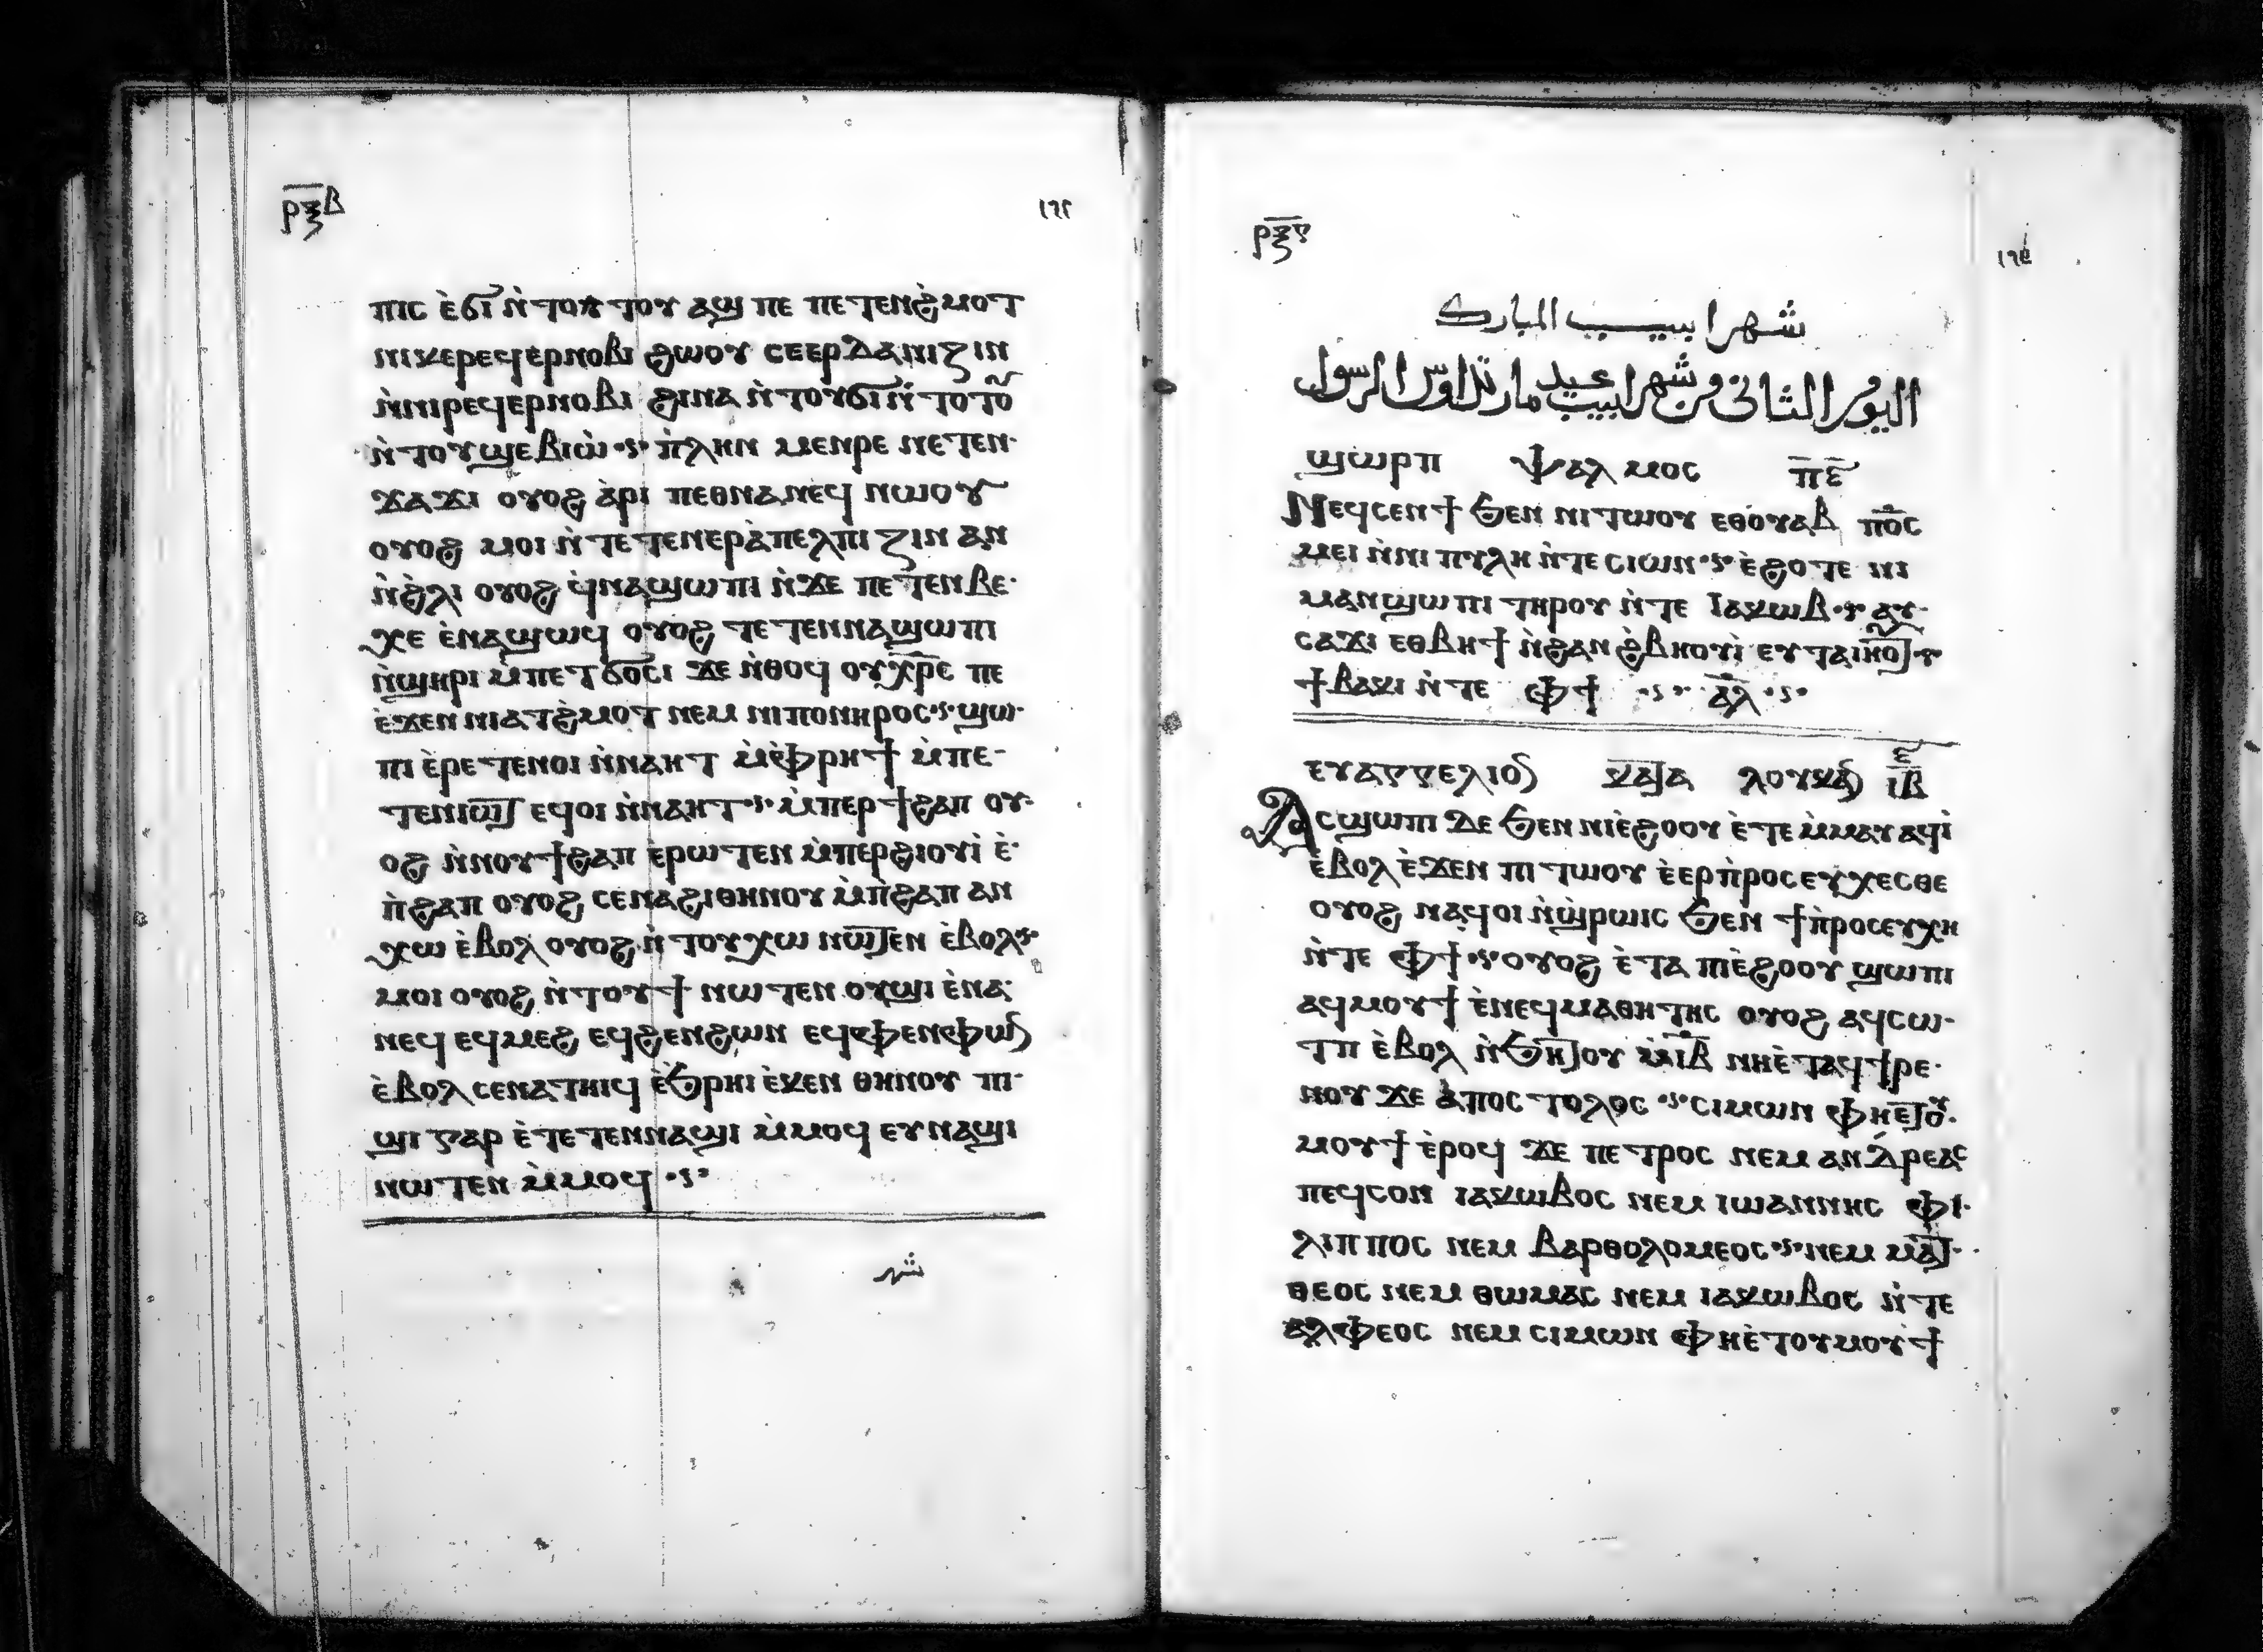 ⲣ̅ⲝ̅ⲃ ١٦٢
ⲡⲓⲥ ⲉ̀ϭⲓ ⲛ̀ⲧⲟⲧⲟⲩ ⲁϣ ⲡⲉ ⲡⲉⲧⲉⲛϩ̀ⲙⲟⲧ
ⲛⲓⲕⲉⲣⲉϥⲉⲣⲛⲟⲃⲓ ϩⲱⲟⲩ ⲥⲉⲉⲣⲇⲁⲛⲓⲍⲓⲛ
ⲛ̀ⲛⲓⲣⲉϥⲉⲣⲛⲟⲃⲓ ϩⲓⲛⲁ ⲛ̀ⲧⲟⲩϭⲓ ⲛ̀ⲧⲟⲧⲟ̅ⲩ
ⲛ̀ⲧⲟⲩϣⲉⲃⲓⲱ̀ ⲡ̀ⲗⲏⲛ ⲙⲉⲛⲣⲉ ⲛⲉⲧⲉⲛ
ϫⲁϫⲓ ⲟⲩⲟϩ ⲁ̀ⲣⲓ ⲡⲉⲑⲛⲁⲛⲉϥ ⲛⲱⲟⲩ
ⲟⲩⲟϩ ⲙⲟⲓ ⲛ̀ⲧⲉⲧⲉⲛⲉⲣⲁ̀ⲡⲉⲗⲡⲓⲍⲓⲛ ⲁⲛ
ⲛ̀ϩ̀ⲗⲓ ⲟⲩⲟϩ ϥ̀ⲛⲁϣⲱⲡⲓ ⲛ̀ϫⲉ ⲡⲉⲧⲉⲛⲃⲉ
ⲭⲉ ⲉ̀ⲛⲁϣⲱϥ ⲟⲩⲟϩ ⲧⲉⲧⲉⲛⲛⲁϣⲱⲡⲓ
ⲛ̀ϣⲏⲣⲓ ⲙ̀ⲡⲉⲧϭⲟⲥⲓ ϫⲉ ⲛ̀ⲑⲟϥ ⲟⲩⲭ̅ⲣ̅ⲥ ⲡⲉ
ⲉ̀ϫⲉⲛ ⲛⲓⲁⲧϩ̀ⲙⲟⲧ ⲛⲉⲙ ⲛⲓⲡⲟⲛⲏⲣⲟⲥ ϣⲱ
ⲡⲓ ⲉ̀ⲣⲉⲧⲉⲛⲟⲓ ⲛ̀ⲛⲁⲏⲧ ⲙ̀ⲫⲣⲏϯ ⲙ̀ⲡⲉ
ⲧⲉⲛⲓⲱ̅ⲧ ⲉϥⲟⲓ ⲛ̀ⲛⲁⲏⲧ ⲙ̀ⲡⲉⲣϯϩⲁⲡ ⲟⲩ
ⲟϩ ⲛ̀ⲛⲟⲩϯϩⲁⲡ ⲉ̀ⲣⲱⲧⲉⲛ ⲙ̀ⲡⲉⲣϩⲓⲟⲩⲓ̀ ⲉ̀
ⲡ̀ϩⲁⲡ ⲟⲩⲟϩ ⲥⲉⲛⲁϩⲓⲑⲏⲛⲟⲩ ⲙ̀ⲡ̀ϩⲁⲡ ⲁⲛ
ⲭⲱ ⲉ̀ⲃⲟⲗ ⲟⲩⲟϩ ⲛ̀ⲧⲟⲩⲭⲱ ⲛⲱ̅ⲧⲉⲛ ⲉ̀ⲃⲟⲗ
ⲙⲟⲓ ⲟⲩⲟϩ ⲛ̀ⲧⲟⲩϯ ⲛⲱⲧⲉⲛ ⲟⲩϣⲓ ⲉ̀ⲛⲁ
ⲛⲉϥ ⲉϥⲙⲉϩ ⲉϥϩⲉⲛϩⲱⲛ ⲉϥⲫⲉⲛⲫⲱⲛ
ⲉ̀ⲃⲟⲗ ⲥⲉⲛⲁⲧⲏⲓϥ ⲉ̀ϧⲣⲏⲓ ⲉ̀ⲕⲉⲛ ⲑⲏⲛⲟⲩ ⲡⲓ
ϣⲓ ⲅⲁⲣ ⲉ̀ⲧⲉⲧⲉⲛⲛⲁϣⲓ ⲙ̀ⲙⲟϥ ⲉⲩⲛⲁϣⲓ
ⲛⲱⲧⲉⲛ ⲙ̀ⲙⲟϥ
شهر
شهر ابيب المبارك
اليوم الثانى من شهر ابيب عيد مار تداوس الرسول
ϣⲱⲣⲡ ⲯⲁⲗⲙⲟⲥ ⲡ̅ⲉ̅
Ⲛⲉϥⲥⲉⲛϯ ϧⲉⲛ ⲛⲓⲧⲱⲟⲩ ⲉⲑⲟⲩⲁⲃ ⲡ̅ⲟ̅ⲥ
ⲙⲉⲓ ⲛ̀ⲛⲓⲡⲩⲗⲏ ⲛ̀ⲧⲉ ⲥⲓⲱⲛ ⲉ̀ϩⲟⲧⲉ ⲛⲓ
ⲙⲁⲛϣⲱⲡⲓ ⲧⲏⲣⲟⲩ ⲛ̀ⲧⲉ Ⲓⲁⲕⲱⲃ ⲁⲩ
ⲥⲁϫⲓ ⲉⲑⲃⲏϯ ⲛ̀ϩⲁⲛϩ̀ⲃⲏⲟⲩⲓ̀ ⲉⲩⲧⲁⲓⲏⲟⲩⲧ
ϯⲃⲁⲕⲓ ⲛ̀ⲧⲉ ⲫϯ ⲁ̅ⲗ
ⲉⲩⲁⲅⲅⲉⲗⲓⲟⲛ ⲕⲁⲧⲁ ⲗⲟⲩⲕⲁⲛ ⲓ̅ⲃ̅
Ⲁⲥϣⲱⲡⲓ ⲇⲉ ϧⲉⲛ ⲛⲓⲉ̀ϩⲟⲟⲩ ⲉ̀ⲧⲉ ⲙ̀ⲙⲁⲩ ⲁϥⲓ̀
ⲉ̀ⲃⲟⲗ ⲉ̀ϫⲉⲛ ⲡⲓⲧⲱⲟⲩ ⲉ̀ⲉⲣⲡ̀ⲣⲟⲥⲉⲩⲭⲉⲥⲑⲉ
ⲟⲩⲟϩ ⲛⲁϥⲟⲓ ⲛ̀ϣ̀ⲣⲱⲓⲥ ϧⲉⲛ ϯⲡ̀ⲣⲟⲥⲉⲩⲭⲏ
ⲛ̀ⲧⲉ ⲫϯ ⲟⲩⲟϩ ⲉ̀ⲧⲁ ⲡⲓⲉ̀ϩⲟⲟⲩ ϣⲱⲡⲓ
ⲁϥⲙⲟⲩϯ ⲉ̀ⲛⲉϥⲙⲁⲑⲏⲧⲏⲥ ⲟⲩⲟϩ ⲁϥⲥⲱ
ⲧⲡ ⲉ̀ⲃⲟⲗ ⲛ̀ϧⲏⲧⲟⲩ ⲙ̀ⲓ̅ⲃ̅ ⲛⲏⲉ̀ⲧⲁϥϯⲣⲉ
ⲛⲟⲩ ϫⲉ ⲁ̀ⲡⲟⲥⲧⲟⲗⲟⲥ ⲥⲓⲙⲱⲛ ⲫⲏⲉⲧⲟⲩ
ⲙⲟⲩϯ ⲉ̀ⲣⲟϥ ϫⲉ ⲡⲉⲧⲣⲟⲥ ⲛⲉⲙ ⲁⲛⲇⲣⲉⲁⲥ
ⲡⲉϥⲥⲟⲛ ⲓⲁⲕⲱⲃⲟⲥ ⲛⲉⲙ ⲓⲱⲁⲛⲛⲏⲥ ⲫⲓ
ⲗⲓⲡⲡⲟⲥ ⲛⲉⲙ ⲃⲁⲣⲑⲟⲗⲟⲙⲉⲟⲥ ⲛⲉⲙ ⲙⲁⲧ
ⲑⲉⲟⲥ ⲛⲉⲙ ⲑⲱⲙⲁⲥ ⲛⲉⲙ ⲓⲁⲕⲱⲃⲟⲥ ⲛ̀ⲧⲉ
ⲁⲗⲫⲉⲟⲥ ⲛⲉⲙ ⲥⲓⲙⲱⲛ ⲫⲏⲉ̀ⲧⲟⲩⲙⲟⲩϯ